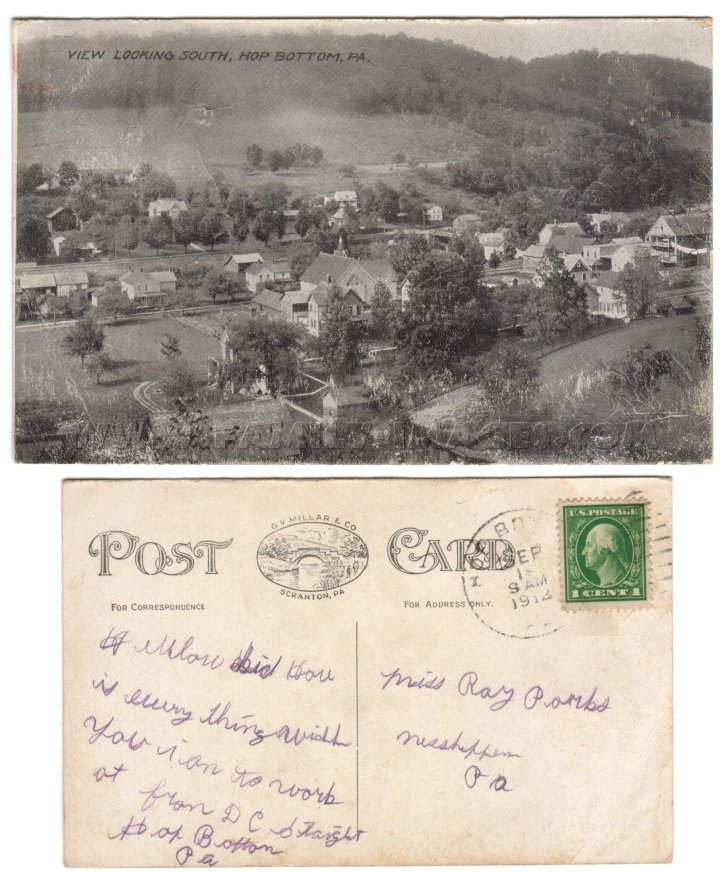 VIEW LOOKING SOUTH, HOP BOTTOM, PA.
POST CARD
G.V. MILLAR & CO
SCRANTON, PA
FOR CORRESPONDENCE
FOR ADDRESS ONLY.
SEP
8 AM
1912
U.S. POSTAGE
1 CENT 1
Hellow kid How
is every thing with
You i an to work
at
fron D C Straight
Hop Botton
Pa
Miss Ray Parks
Pa